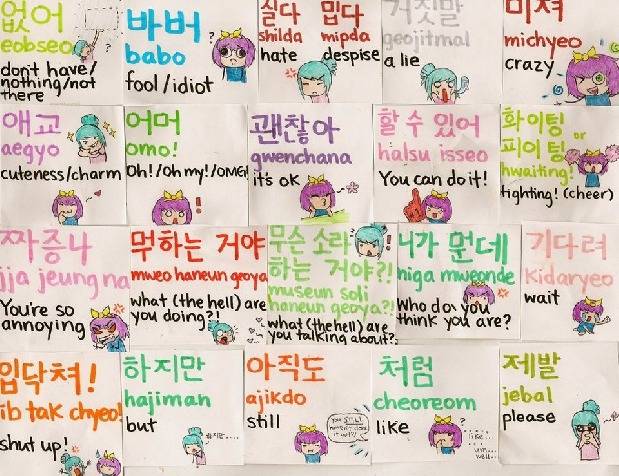 없어
eobseo
don't have/
nothing/not
there
?
바버
babo
fool/idiot
?
싫다 밉다
shilda mipda
hate despise
거짓말
geojitmal
a lie
미쳐
michyeo
crazy
애교
aegyo
cuteness/charm
어머
omo!
Oh!/Oh my!/OMG!
!
괜찮아
gwenchana
it's ok
할 수 있어
halsu isseo
You can do it!
화이팅 or
피이팅
hwaiting!
fighting! (cheer)
짜증나
jja jeung na
You're so
annoying
뭐하는 거야
mweo haneun geoya
what (the hell) are
you doing?!
무슨 소리
하는 거야?!
museun soli
haneun geoya?!
what (the hell) are
you talking about?!
니가 뭔데
niga mweonde
Who do you
think you are?
기다려
Kidaryeo
wait
입닥쳐!
ib tak chyeo!
shut up!
하지만
hajiman
but
하지만....
아직도
ajikdo
still
you STILL
haven't done
it yet?!
처럼
cheoreom
like
?
like...
um...
well...
제발
jebal
please